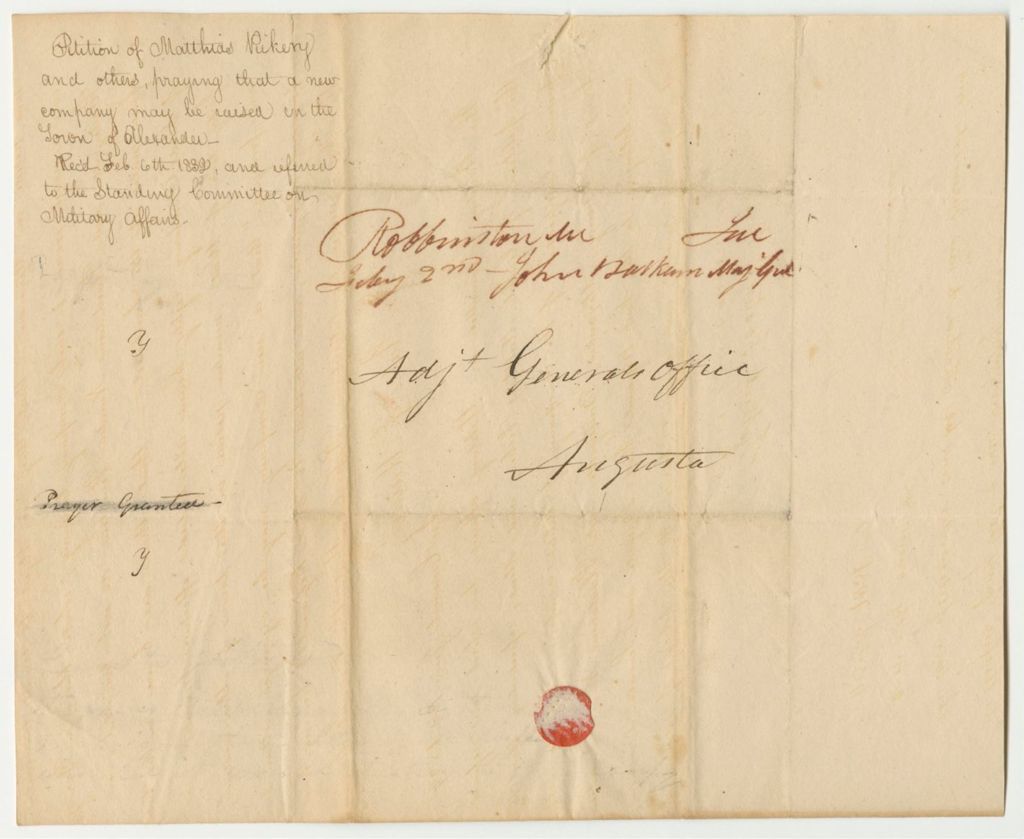 Petition of Matthias Vickery
and others, praying that a new
company may be raised in the
Town of Alexander
Rec'd Feb. 6th 1832, and referred
to the Standing Committee on
Military Affairs.
Robbinston Me
Feby 2nd - John Balkam Maj Genl
Adjt Generals Office
Augusta
Prayer Granted